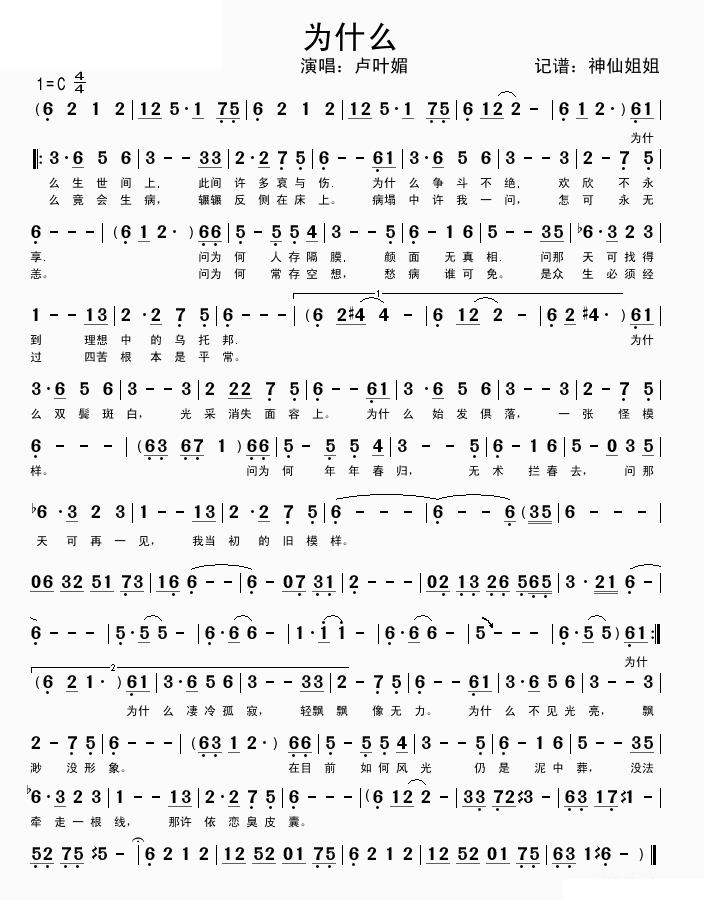 为什么
演唱：卢叶媚 记谱：神仙姐姐
1=C 4/4
(6 2 1 2 | 12 5·1 75 | 6 2 1 2 | 12 5·1 75 | 6 12 2 – | 6 1 2·) 61
为什
‖: 3·6 5 6 | 3 – – 33 | 2·2 7 5 | 6 – – 61 | 3·6 5 6 | 3 – – 3 | 2 – 7 5 |
么 生 世 间 上， 此间 许 多 哀 与 伤． 为什 么 争 斗 不 绝， 欢 欣 不 永
么 竟 会 生 病， 辗辗 反 侧 在 床 上。 病塌 中 许 我 一 问， 怎 可 永 无
6 – – – | (6 1 2·) 66 | 5 – 5 5 4 | 3 – – 5 | 6 – 1 6 | 5 – – 35 | ♭6·3 2 3 |
享． 问为 何 人 存 隔 膜， 颜 面 无 真 相． 问那 天 可 找 得
恙。 问为 何 常 存 空 想， 愁 病 谁 可 免。 是众 生 必 须 经
1 – – 13 | 2·2 7 5 | 6 – – – | 1 (6 2♯4 4 – | 6 12 2 – | 6 2 ♯4·) 61 |
到 理想 中 的 乌 托 邦． 为什
过 四苦 根 本 是 平 常。
3·6 5 6 | 3 – – 3 | 2 22 7 5 | 6 – – 61 | 3·6 5 6 | 3 – – 3 | 2 – 7 5 |
么 双 鬓 斑 白， 光 采 消失 面 容 上。 为什 么 始 发 俱 落， 一 张 怪 模
6 – – – | (63 67 1) 66 | 5 – 5 5 4 | 3 – – 5 | 6 – 1 6 | 5 – 0 3 5 |
样。 问为 何 年 年 春 归， 无 术 拦 春 去， 问 那
♭6·3 2 3 | 1 – – 13 | 2·2 7 5 | 6 – – – | 6 – – 6 (35 | 6 – – – |
天 可 再 一 见， 我当 初 的 旧 模 样。
06 32 51 73 | 16 6 – | 6 – 07 31 | 2 – – – | 02 13 26 565 | 3·21 6 – |
6 – – – | 5·5 5 – | 6·6 6 – | 1·1 1 – | 6·6 6 – | 5 – – – | 6·5 5) 61 :‖
为什
2 (6 2 1·) 61 | 3·6 5 6 | 3 – – 33 | 2 – 7 5 | 6 – – 61 | 3·6 5 6 | 3 – – 3 |
为什 么 凄 冷 孤 寂， 轻飘 飘 像 无 力。 为什 么 不 见 光 亮， 飘
2 – 7 5 | 6 – – – | (63 1 2·) 66 | 5 – 5 5 4 | 3 – – 5 | 6 – 1 6 | 5 – – 35 |
渺 没 形 象。 在目 前 如 何 风 光 仍 是 泥 中 葬， 没法
♭6·3 2 3 | 1 – – 13 | 2·2 7 5 | 6 – – – | (6 12 2 – | 33 72 ♯3 – | 63 17 ♯1 – |
牵 走 一 根 线， 那许 依 恋 臭 皮 囊。
52 75 ♯5 – | 6 2 1 2 | 12 52 01 75 | 6 2 1 2 | 12 52 01 75 | 63 1♯6 – ) ‖